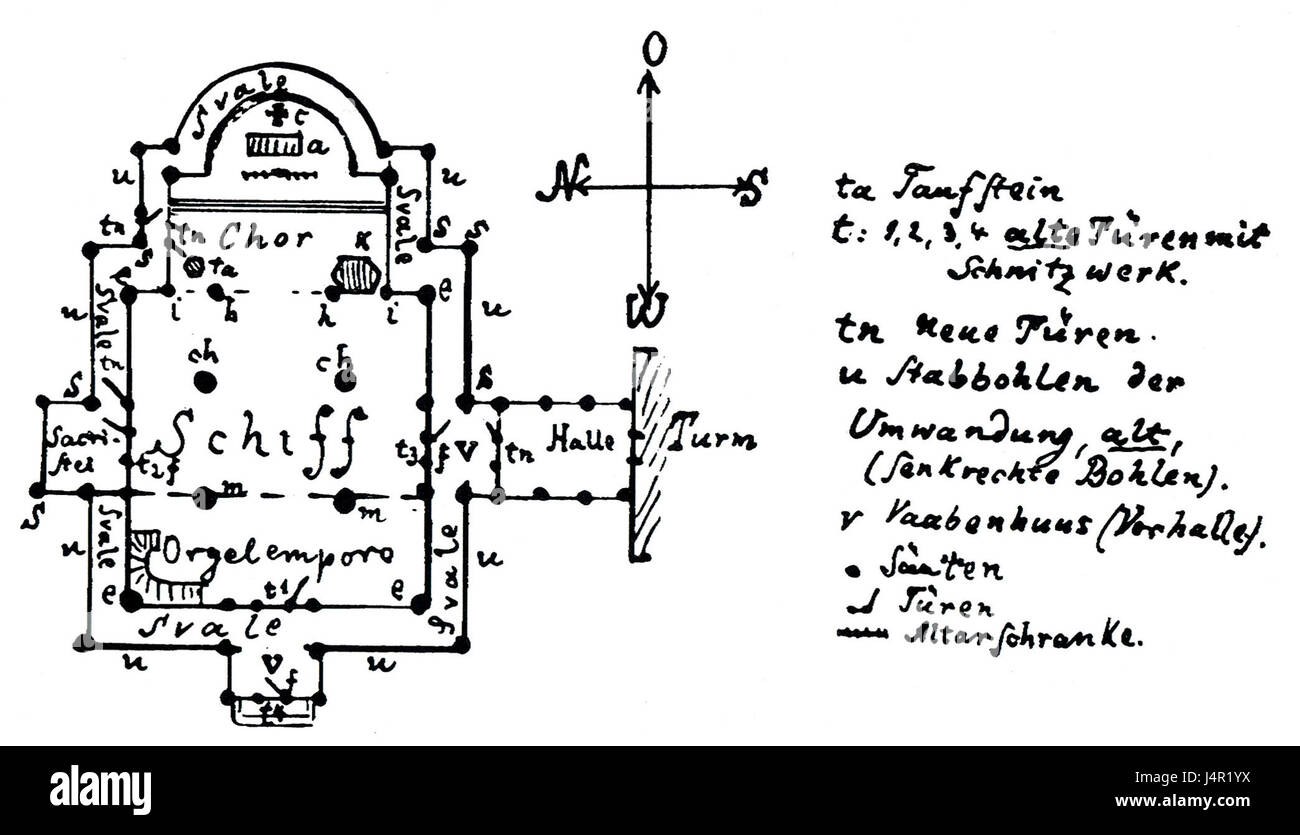 O
N S
W
Svale
c
a
u u
Svale
tn
s s s
tn Chor K
ta
e e
i h h i
u u
Svale t
ch ch
s s
Schiff
Sacri-
stei
t2 f t3 f V tn Halle Turm
s m m
Svale
u u
Orgelempore
Svale
t1
e e
Svale
u u
V
f
t4
ta Taufstein
t: 1, 2, 3, 4 alte Türen mit
Schnitzwerk.
tn neue Türen.
u Stabbohlen der
Umwandung, alt,
(senkrechte Bohlen).
v Vaabenhuus (Vorhalle).
Säulen
Türen
Altarschranke.
alamy
alamy stock photo
Image ID: J4R1YX
www.alamy.com